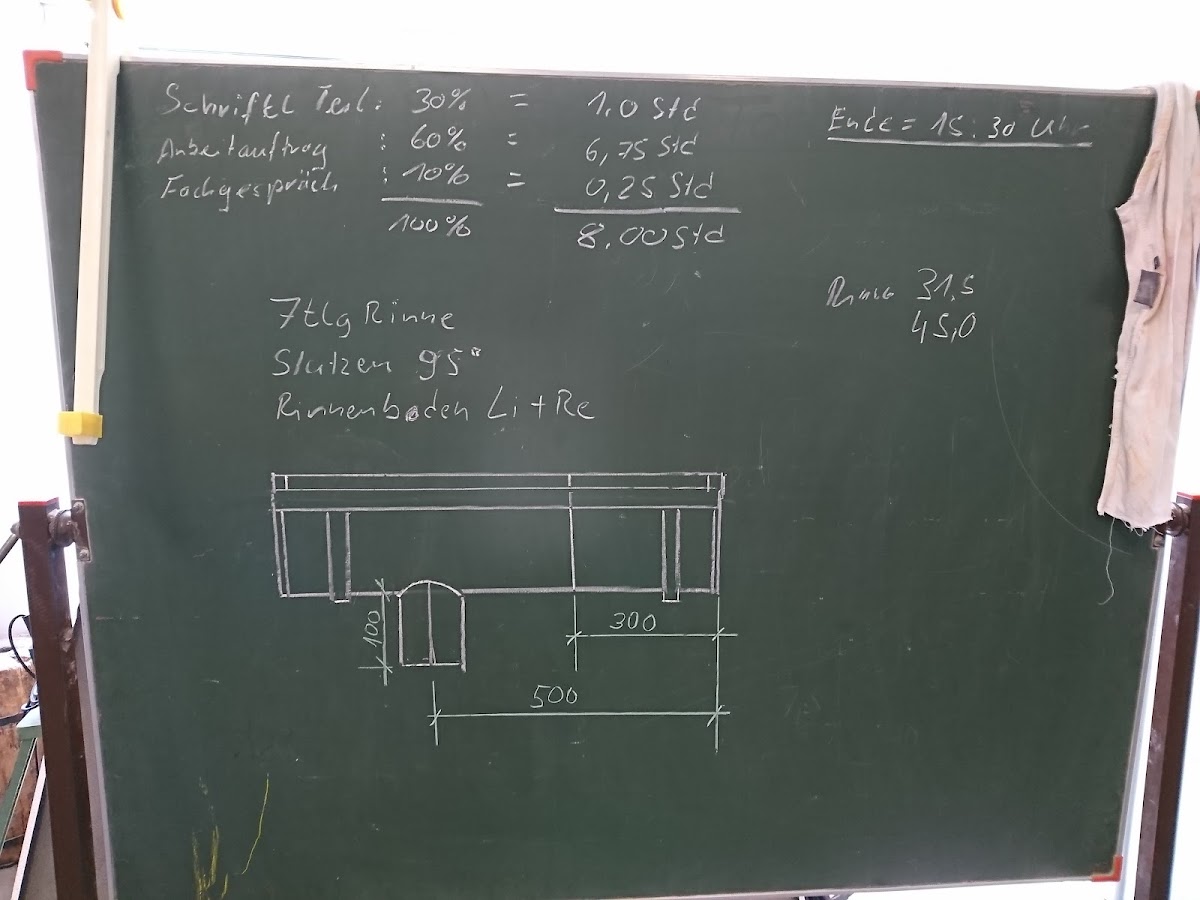 Schriftl Teil: 30% = 1,0 Std
Arbeitauftrag : 60% = 6,75 Std
Fachgespräch : 10% = 0,25 Std
100% 8,00 Std
Ende = 15:30 Uhr
Rinne 31,5
45,0
7tlg Rinne
Stutzen 95°
Rinnenboden Li + Re
100
300
500